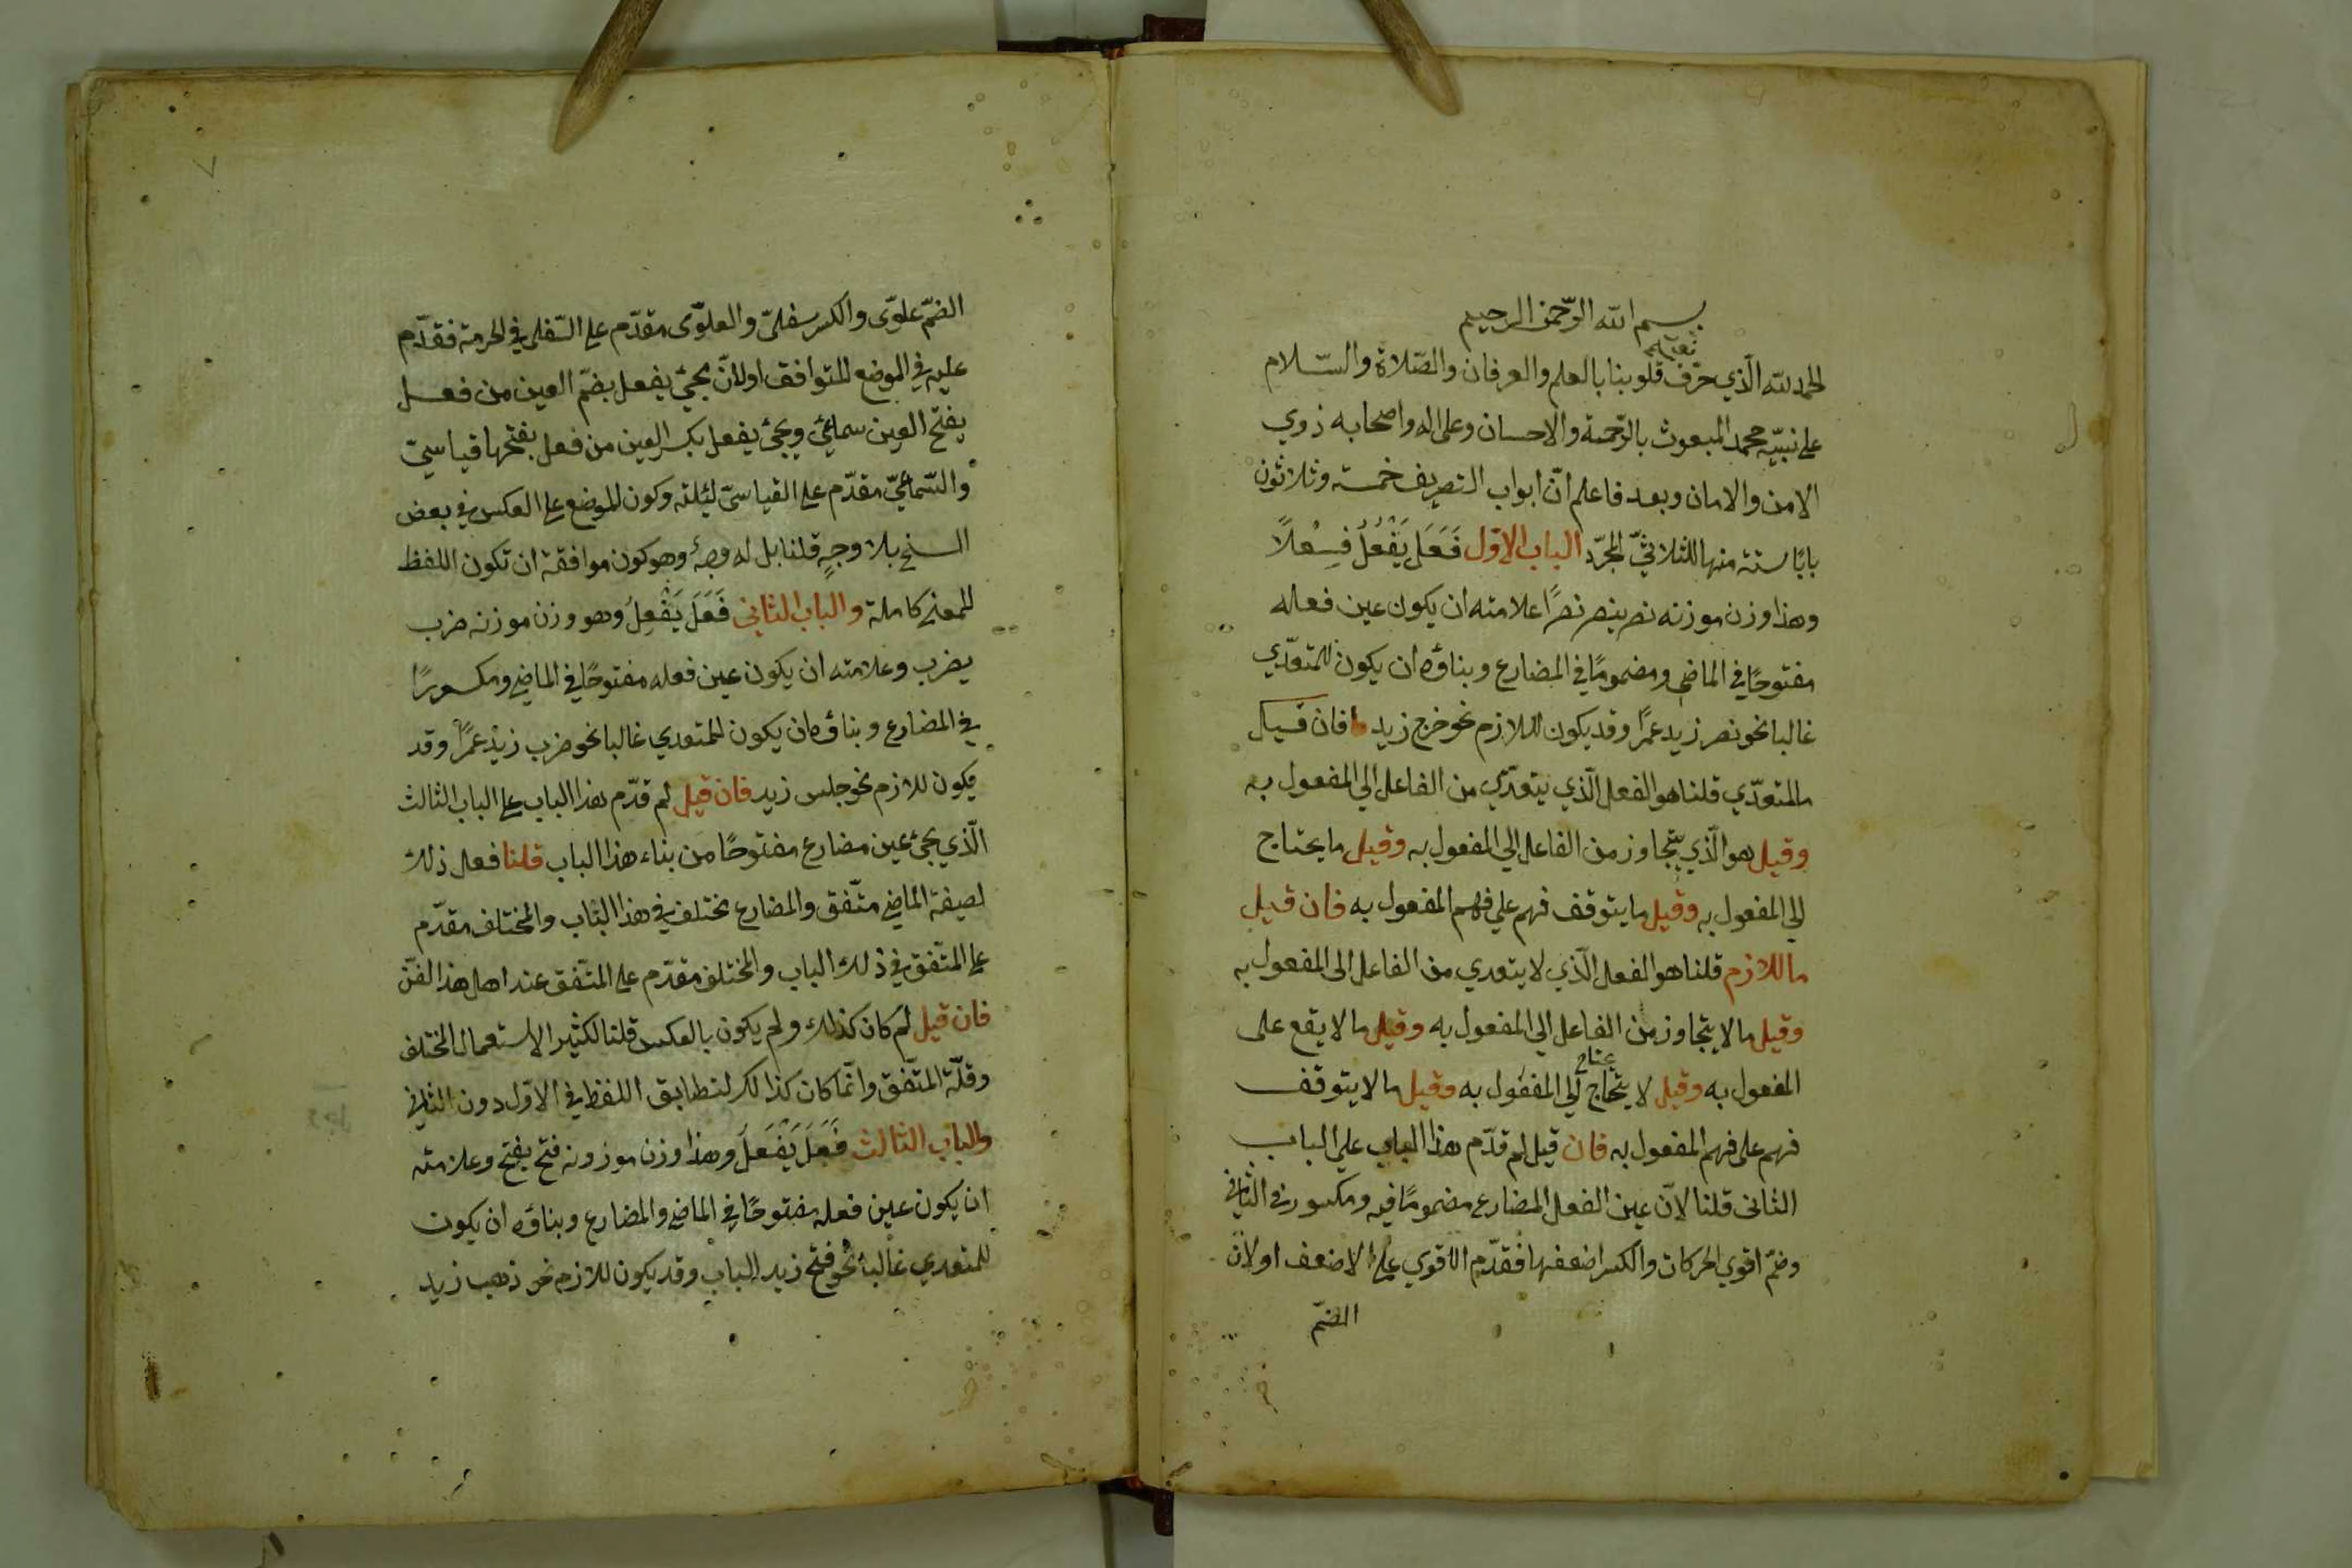 بسم الله الرّحمن الرحيم
الحمد لله الّذي صرّف قلوبنا بالعلم والعرفان والصّلاة والسّلام
على نبيّه محمد المبعوث بالرّحمة والاحسان وعلى اله واصحابه ذوي
الامن والامان وبعد فاعلم انّ ابواب التصريف خمسة وثلاثون
بابًا ستة منها للثلاثيّ المجرّد الباب الاوّل فَعَلَ يَفْعُلُ فِعْلاً
وهذا وزن موزنه نصر ينصر نصرًا علامته ان يكون عين فعله
مفتوحًا في الماضى ومضمومًا في المضارع وبناؤه ان يكون للمتعدّي
غالبا نحو نصر زيد عمرًا وقد يكون للازم نحو خرج زيد فان قيل
ما المتعدّي قلنا هو الفعل الّذي يتعدّي من الفاعل الي المفعول به
وقيل هو الّذي يتجاوز من الفاعل الي المفعول به وقيل ما يحتاج
الي المفعول به وقيل ما يتوقف فهم على فهم المفعول به فان قيل
ما اللازم قلنا هو الفعل الّذي لا يتعدي من الفاعل الى المفعول به
وقيل ما لا يتجاوز من الفاعل الي المفعول به وقيل ما لا يقع على
يحتاج
المفعول به وقيل لا يتحاج الي المفعول به وقيل ما لا يتوقف
فهم على فهم المفعول به فان قيل لم قدّم هذا الباب علي الباب
الثانى قلنا لانّ عين الفعل المضارع مضمومًا فيه ومكسور في الثاني
وضمّ اقوي الحركات والكسر اضعفها فقدّم الاقوي علي الاضعف اولانّ
الضمّ
الضمّ علوّى والكسر سفليّ والعلوّى مقدّم علي السّفلى في الحرمة فقدّم
عليه في الموضع للتوافق اولانّ يجيئ يفعل بضمّ العين من فعل
بفتح العين سماعيّ ويجئ يفعل بكسر العين من فعل بفتحها قياسيّ
والسّماعيّ مقدّم علي القياسيّ وكون الموضع علي العكس في بعض
النسخ بلا وجهٍ قلنا بل له وجهٌ وهو كون موافقة ان تكون اللفظ
للمعني كاملة والباب الثانى فَعَلَ يَفْعِلُ وهو وزن موزنه ضرب
يضرب وعلامته ان يكون عين فعله مفتوحًا في الماضي ومكسورًا
في المضارع وبناؤه ان يكون للمتعدي غالبا نحو ضرب زيد عمرًا وقد
يكون للازم نحو جلس زيد فان قيل لم قدّم هذا الباب علي الباب الثالث
الّذي يجئ عين مضارع مفتوحًا من بناء هذا الباب قلنا فعل ذلك
لصيغة الماضي متّفق والمضارع مختلف في هذا الباب والمختلف مقدّم
علي المتّفق في ذلك الباب والمختلف مقدّم علي المتّفق عند اهل هذا الفنّ
فان قيل لم كان كذلك ولم يكون بالعكس قلنا لكثير الاستعمال المختلف
وقلّة المتّفق وانّما كان كذا لكن لتطابق اللفظ في الاوّل دون الثاني
والباب الثالث فَعَلَ يَفْعَلُ وهذا وزن موزونه فتح يفتح وعلامته
ان يكون عين فعله مفتوحًا في الماضي والمضارع وبناؤه ان يكون
للمتعدي غالبا نحو فتح زيد الباب وقد يكون للازم نحو ذهب زيد